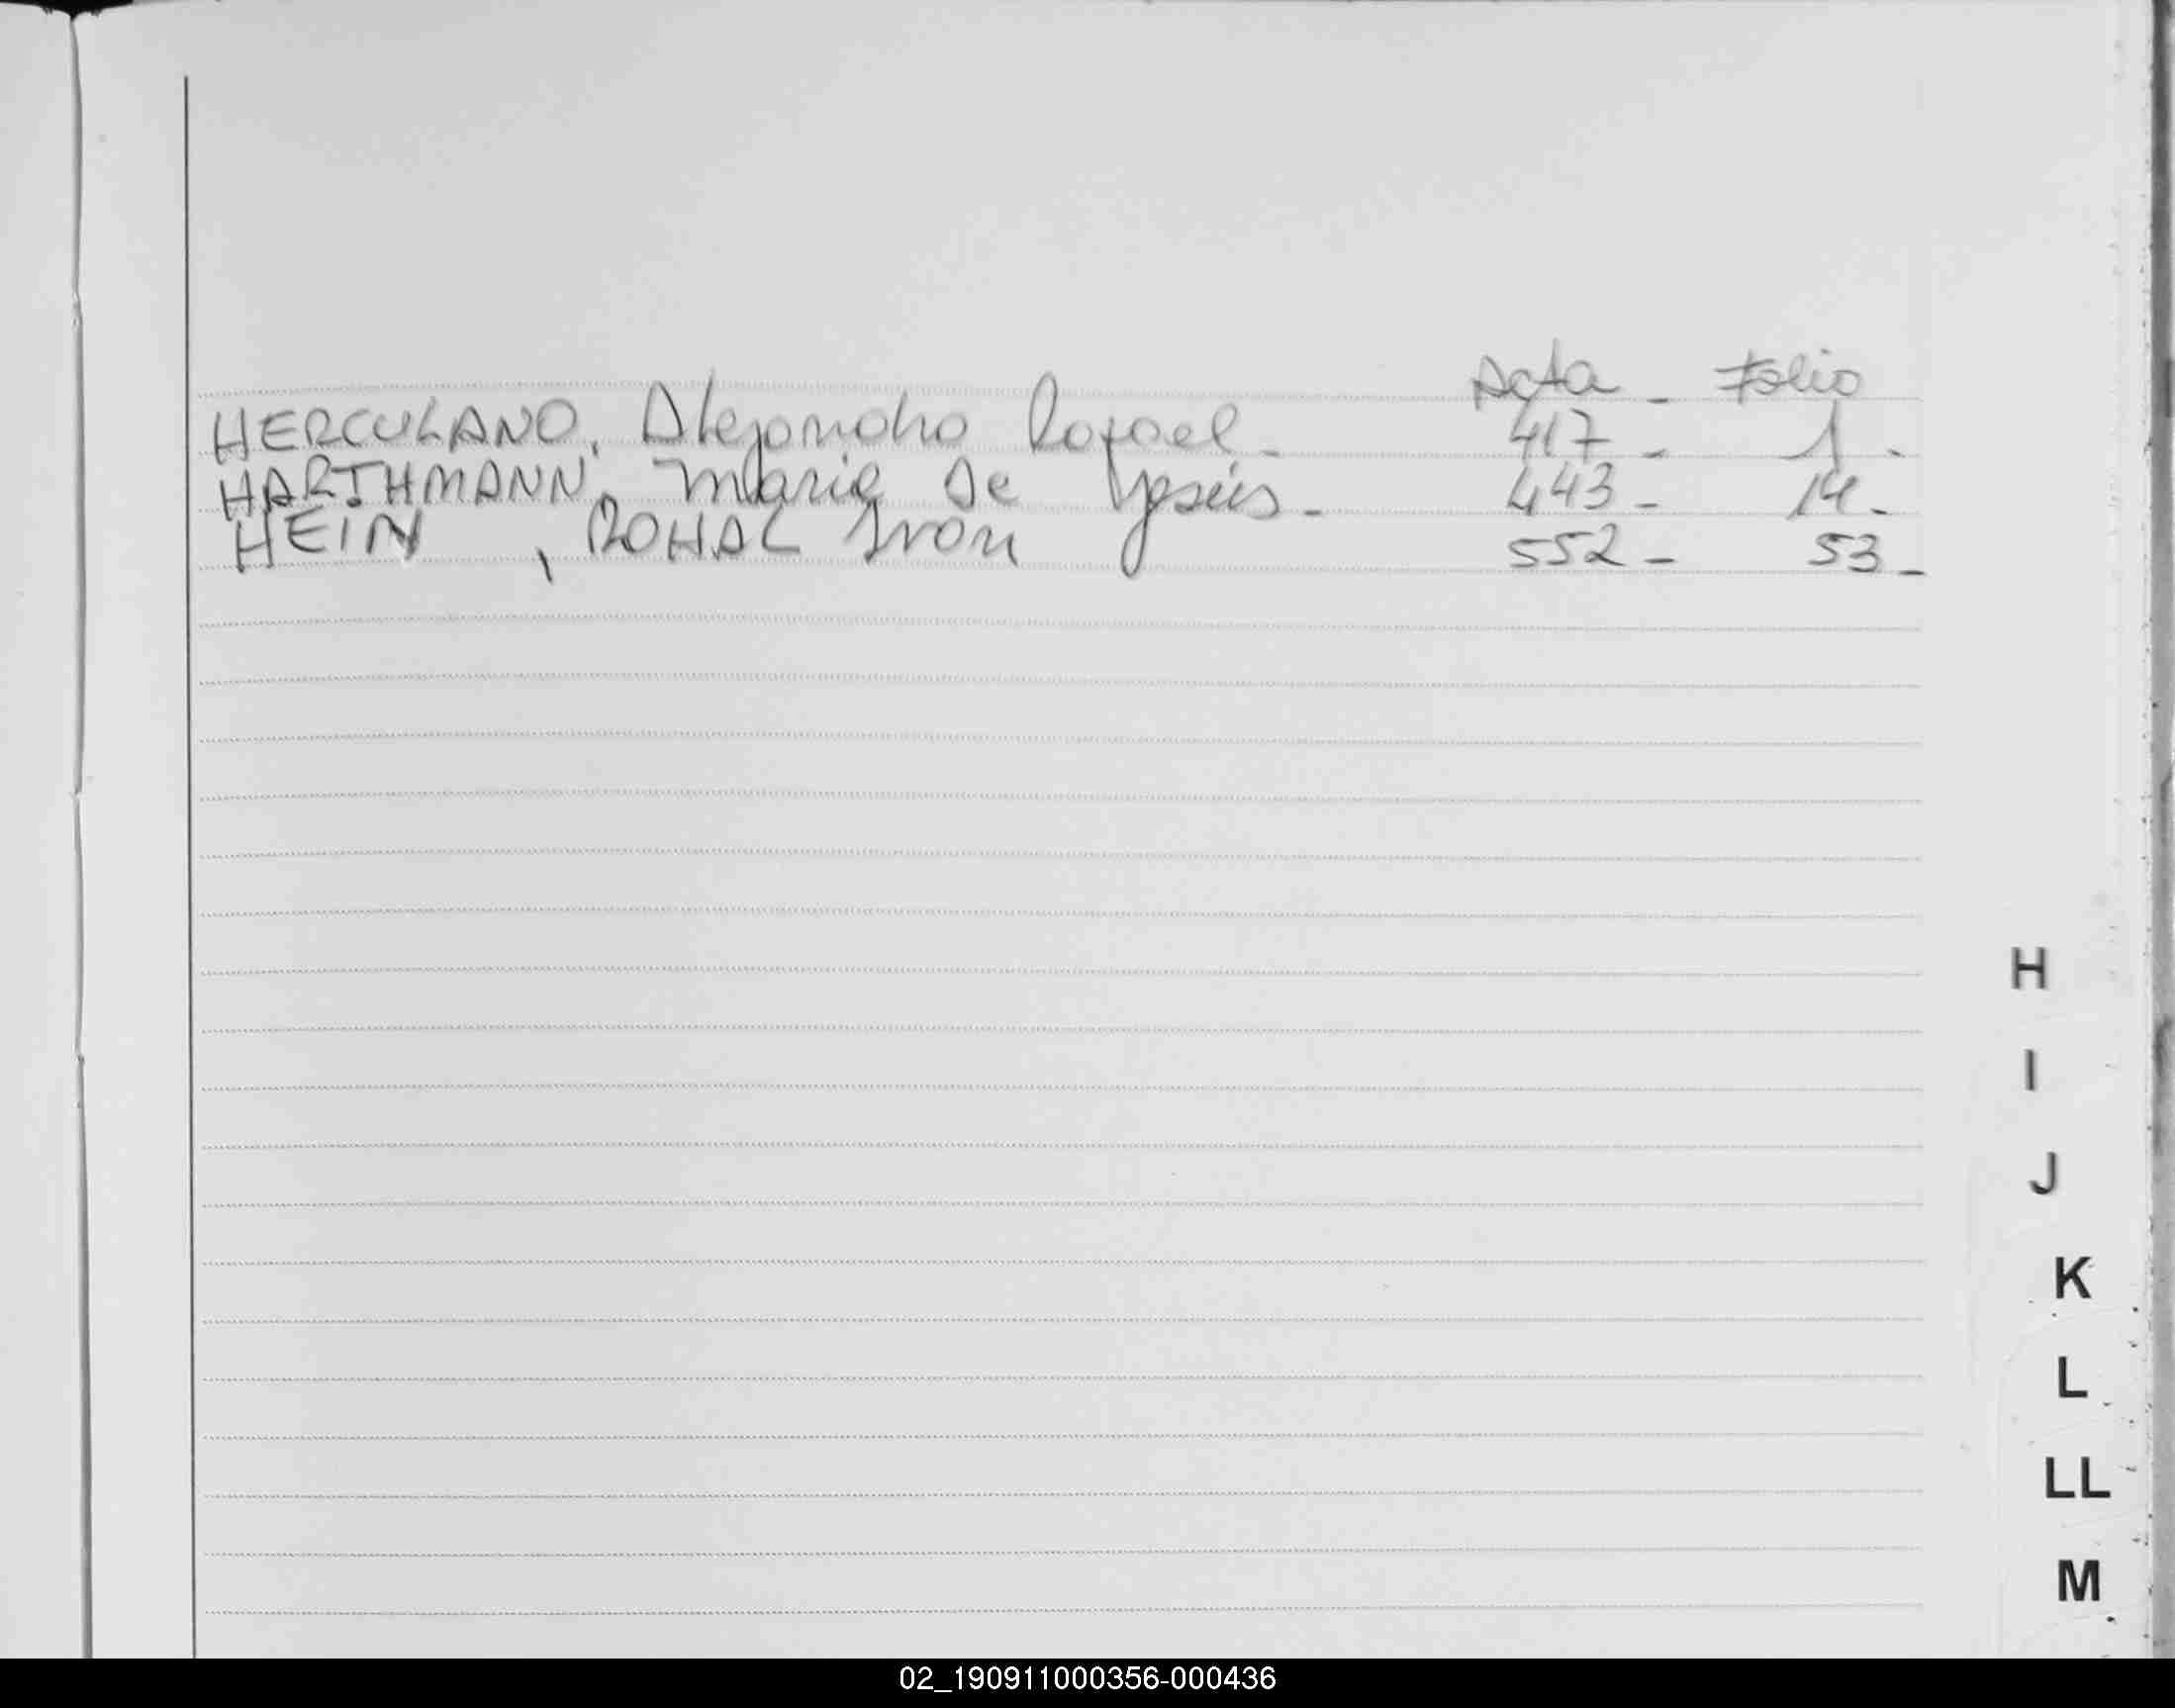 Acta - Folio
HERCULANO, Alejandro Rafael - 417 - 1 -
HARTHMANN, Maria De Jesús - 443 - 14 -
HEIN, ROHAL Ivon 552 - 53 -
H
I
J
K
L
LL
M
02_190911000356-000436